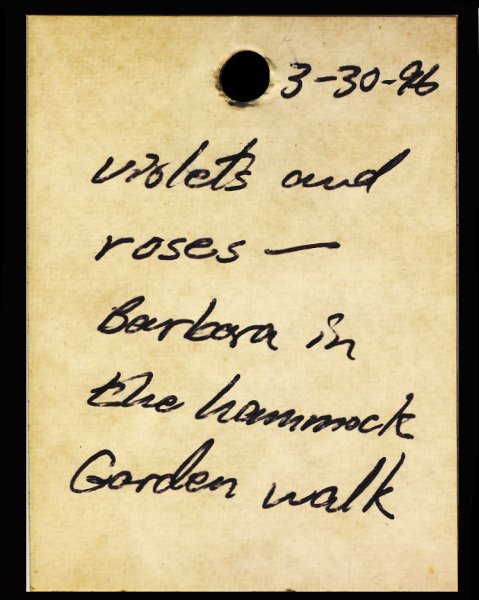 3-30-96
violets and
roses —
Barbara in
the hammock
Garden walk